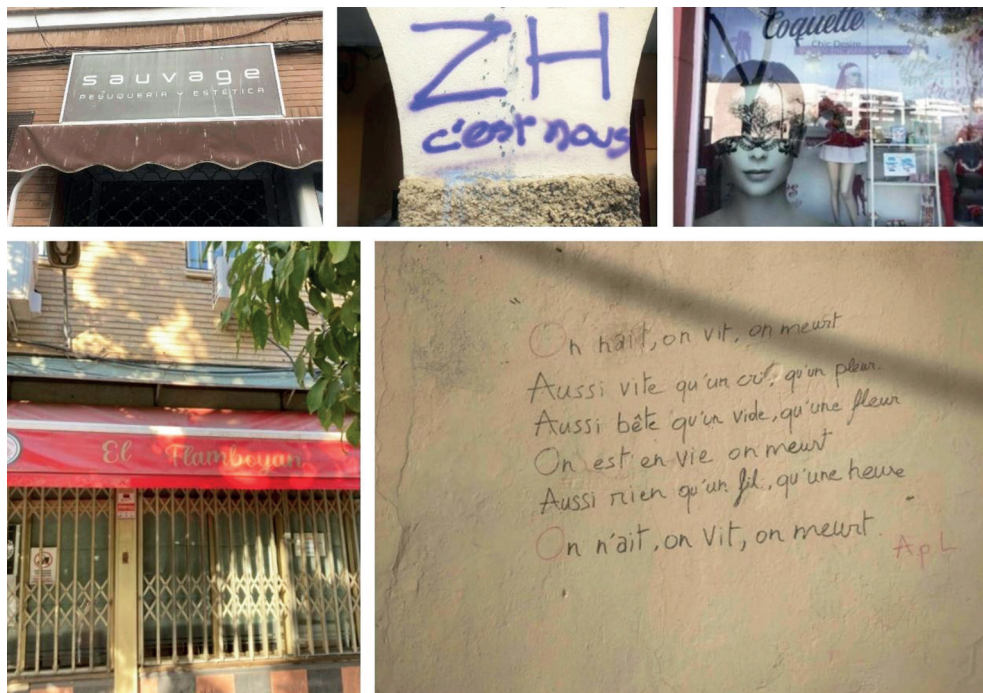 sauvage
PELUQUERIA Y ESTÉTICA
ZH
c'est nous
Coquette
Chic Desire
El Flamboyan
"
On nait, on vit, on meurt
Aussi vite qu'un cri, qu'un pleur.
Aussi bête qu'un vide, qu'une fleur
On est en vie on meurt
Aussi rien qu'un fil, qu'une heure
On n'ait, on Vit, on meurt.
"
ApL